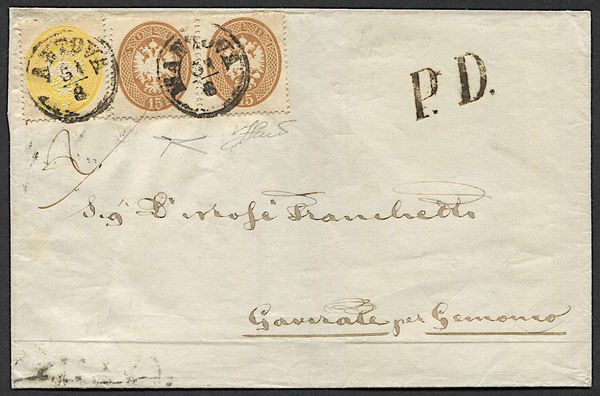 MANTOVA
31/8
MANTOVA
31/8
15
15
P. D.
Sig.r D.r Mosé Franchetti
Gaverate per Gemonio